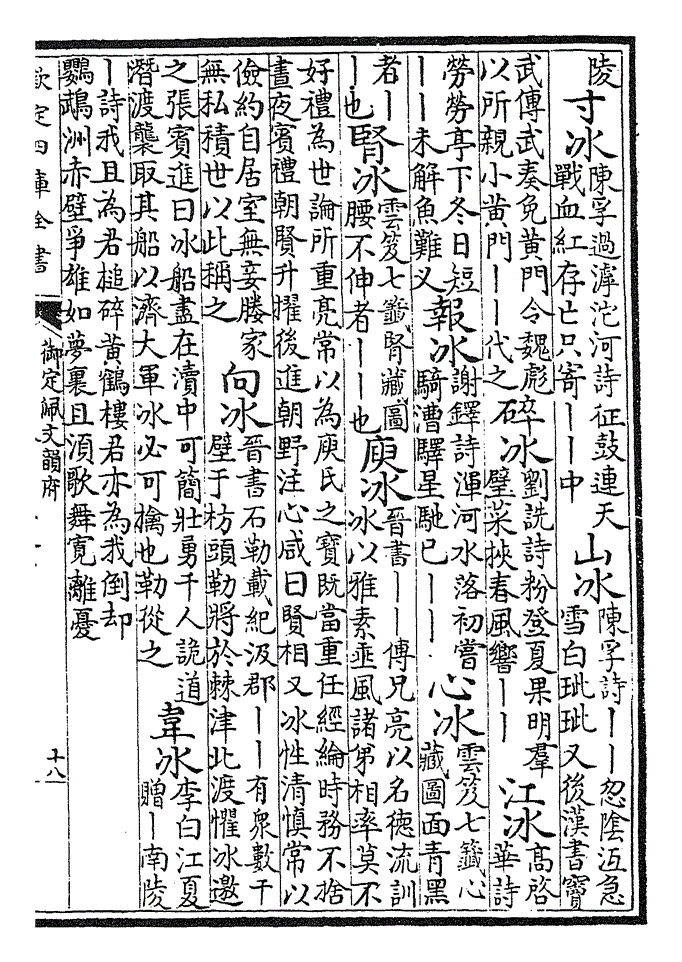 陵寸冰陳孚過滹沱河詩征鼓連天戰血紅存亡只寄丨丨中山冰陳孚詩丨丨忽陰沍急雪白玼玼又後漢書竇
武傳武奏免黄門令魏彪以所親小黄門丨丨代之碎冰劉詵詩粉登夏果明羣璧菜挾春風響丨丨江冰高啓華詩
勞勞亭下冬日短丨丨未解魚難乂報冰謝鐸詩渾河水落初嘗騎漕驛星馳已丨丨心冰雲笈七籤心藏圖面青黑
者丨丨也腎冰雲笈七籤腎藏圖腰不伸者丨丨也庾冰晉書丨丨傳兄亮以名德流訓冰以雅素垂風諸弟相率莫不
好禮為世論所重亮常以為庾氏之寶既當重任經綸時務不捨晝夜賓禮朝賢升擢後進朝野注心咸曰賢相又冰性清慎常以
儉約自居室無妾媵家無私積世以此稱之向冰晉書石勒載紀汲郡丨丨有衆數千壁于枋頭勒將於棘津北渡懼冰邀
之張賓進曰冰船盡在瀆中可簡壯勇千人詭道潛渡襲取其船以濟大軍冰必可擒也勒從之韋冰李白江夏贈丨南陵
丨詩我且為君槌碎黄鶴樓君亦為我倒却鸚鵡洲赤壁爭雄如夢裏且須歌舞寛離憂
欽定四庫全書
御定佩文韻府
十八